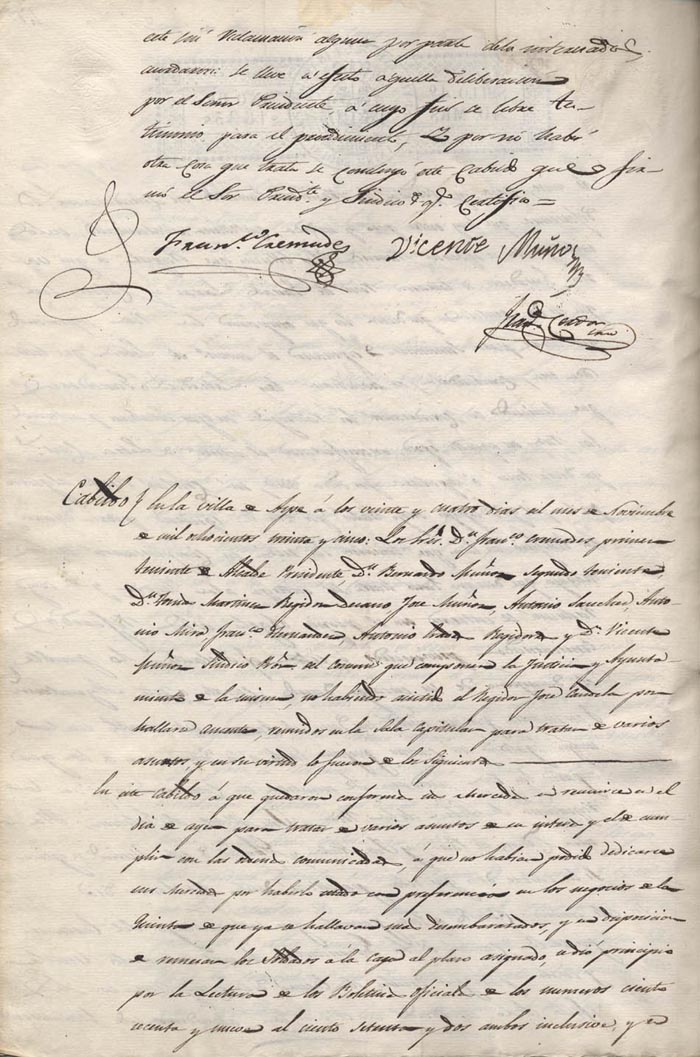 este sin reclamacion alguna por parte de los interesados,
acordaron: se lleve a efecto aquella deliberacion
por el Señor Presidente a cuyo fin se libre tes-
timonio para el procedimiento, y por no haber
otra cosa que tratar se concluyó este Cabildo que fir-
mó el Sor Presid.te y Sindico de q.e Certifico =
Fran.co Cremades Vicente Muñoz
Cabildo En la Villa de Aspe á los veinte y cuatro dias del mes de Noviembre
de mil ochocientos treinta y cinco: Los Sres. D.n Fran.co Cremades primer
teniente de Alcalde Presidente, D.n Bernardo Muñoz segundo teniente,
D.n Tomas Martinez Regidor decano Jose Muñoz, Antonio Sanchez, Anto-
nio Mira, Fran.co Hernandez, Antonio Regidores y D.n Vicente
Muñoz Sindico Pror. del Comun que componen la Justicia y Ayunta-
miento de la misma, no habiendo asistido el Regidor Jose Candela por
hallarse ausente, reunidos en la Sala Capitular para tratar de varios
asuntos y en su virtud lo fueron de los siguientes
En este Cabildo á que quedaron conformes sus Mercedes en reunirse en el
dia de ayer para tratar de varios asuntos de su interes y el de cum-
plir con las nuevas comunicadas, á que no habian podido dedicarse
sus Mercedes por haberlo con preferencia en los negocios de la
Quinta de que ya se hallavan mas desembarasados, y en disposicion
de los Soldados á la caja al plazo asignado, se dió principio
por la Lectura de los Boletines oficiales de los numeros ciento
sesenta y uno al ciento setenta y dos ambos inclusive, y se